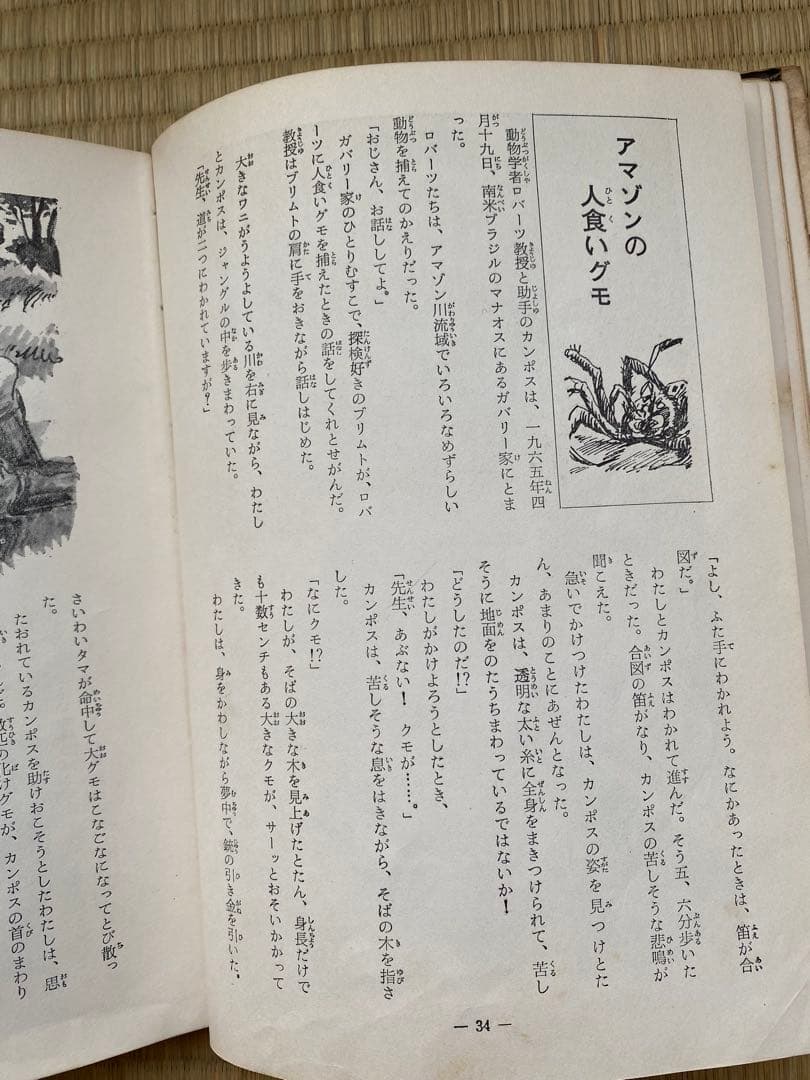 アマゾンの
人食いグモ
動物学者ロバーツ教授と助手のカンポスは、一九六五年四
月十九日、南米ブラジルのマナオスにあるガバリー家にとま
った。
ロバーツたちは、アマゾン川流域でいろいろなめずらしい
動物を捕えてのかえりだった。
「おじさん、お話ししてよ。」
ガバリー家のひとりむすこで、探検好きのプリムトが、ロバ
ーツに人食いグモを捕えたときの話をしてくれとせがんだ。
教授はプリムトの肩に手をおきながら話しはじめた。
大きなワニがうようよしている川を右に見ながら、わたし
とカンポスは、ジャングルの中を歩きまわっていた。
「先生、道が二つにわかれていますが？」
「よし、ふた手にわかれよう。なにかあったときは、笛が合
図だ。」
わたしとカンポスはわかれて進んだ。そう五、六分歩いた
ときだった。合図の笛がなり、カンポスの苦しそうな悲鳴が
聞こえた。
急いでかけつけたわたしは、カンポスの姿を見つけとた
ん、あまりのことにあぜんとなった。
カンポスは、透明な太い糸に全身をまきつけられて、苦し
そうに地面をのたうちまわっているではないか！
「どうしたのだ！？」
わたしがかけよろうとしたとき、
「先生、あぶない！　クモが……。」
カンポスは、苦しそうな息をはきながら、そばの木を指さ
した。
「なにクモ！？」
わたしが、そばの大きな木を見上げたとたん、身長だけで
も十数センチもある大きなクモが、サーッとおそいかかって
きた。
わたしは、身をかわしながら夢中で、銃の引き金を引いた。
— 34 —
さいわいタマが命中して大グモはこなごなになってとび散っ
た。
たおれているカンポスを助けおこそうとしたわたしは、思
化けグモが、カンポスの首のまわり